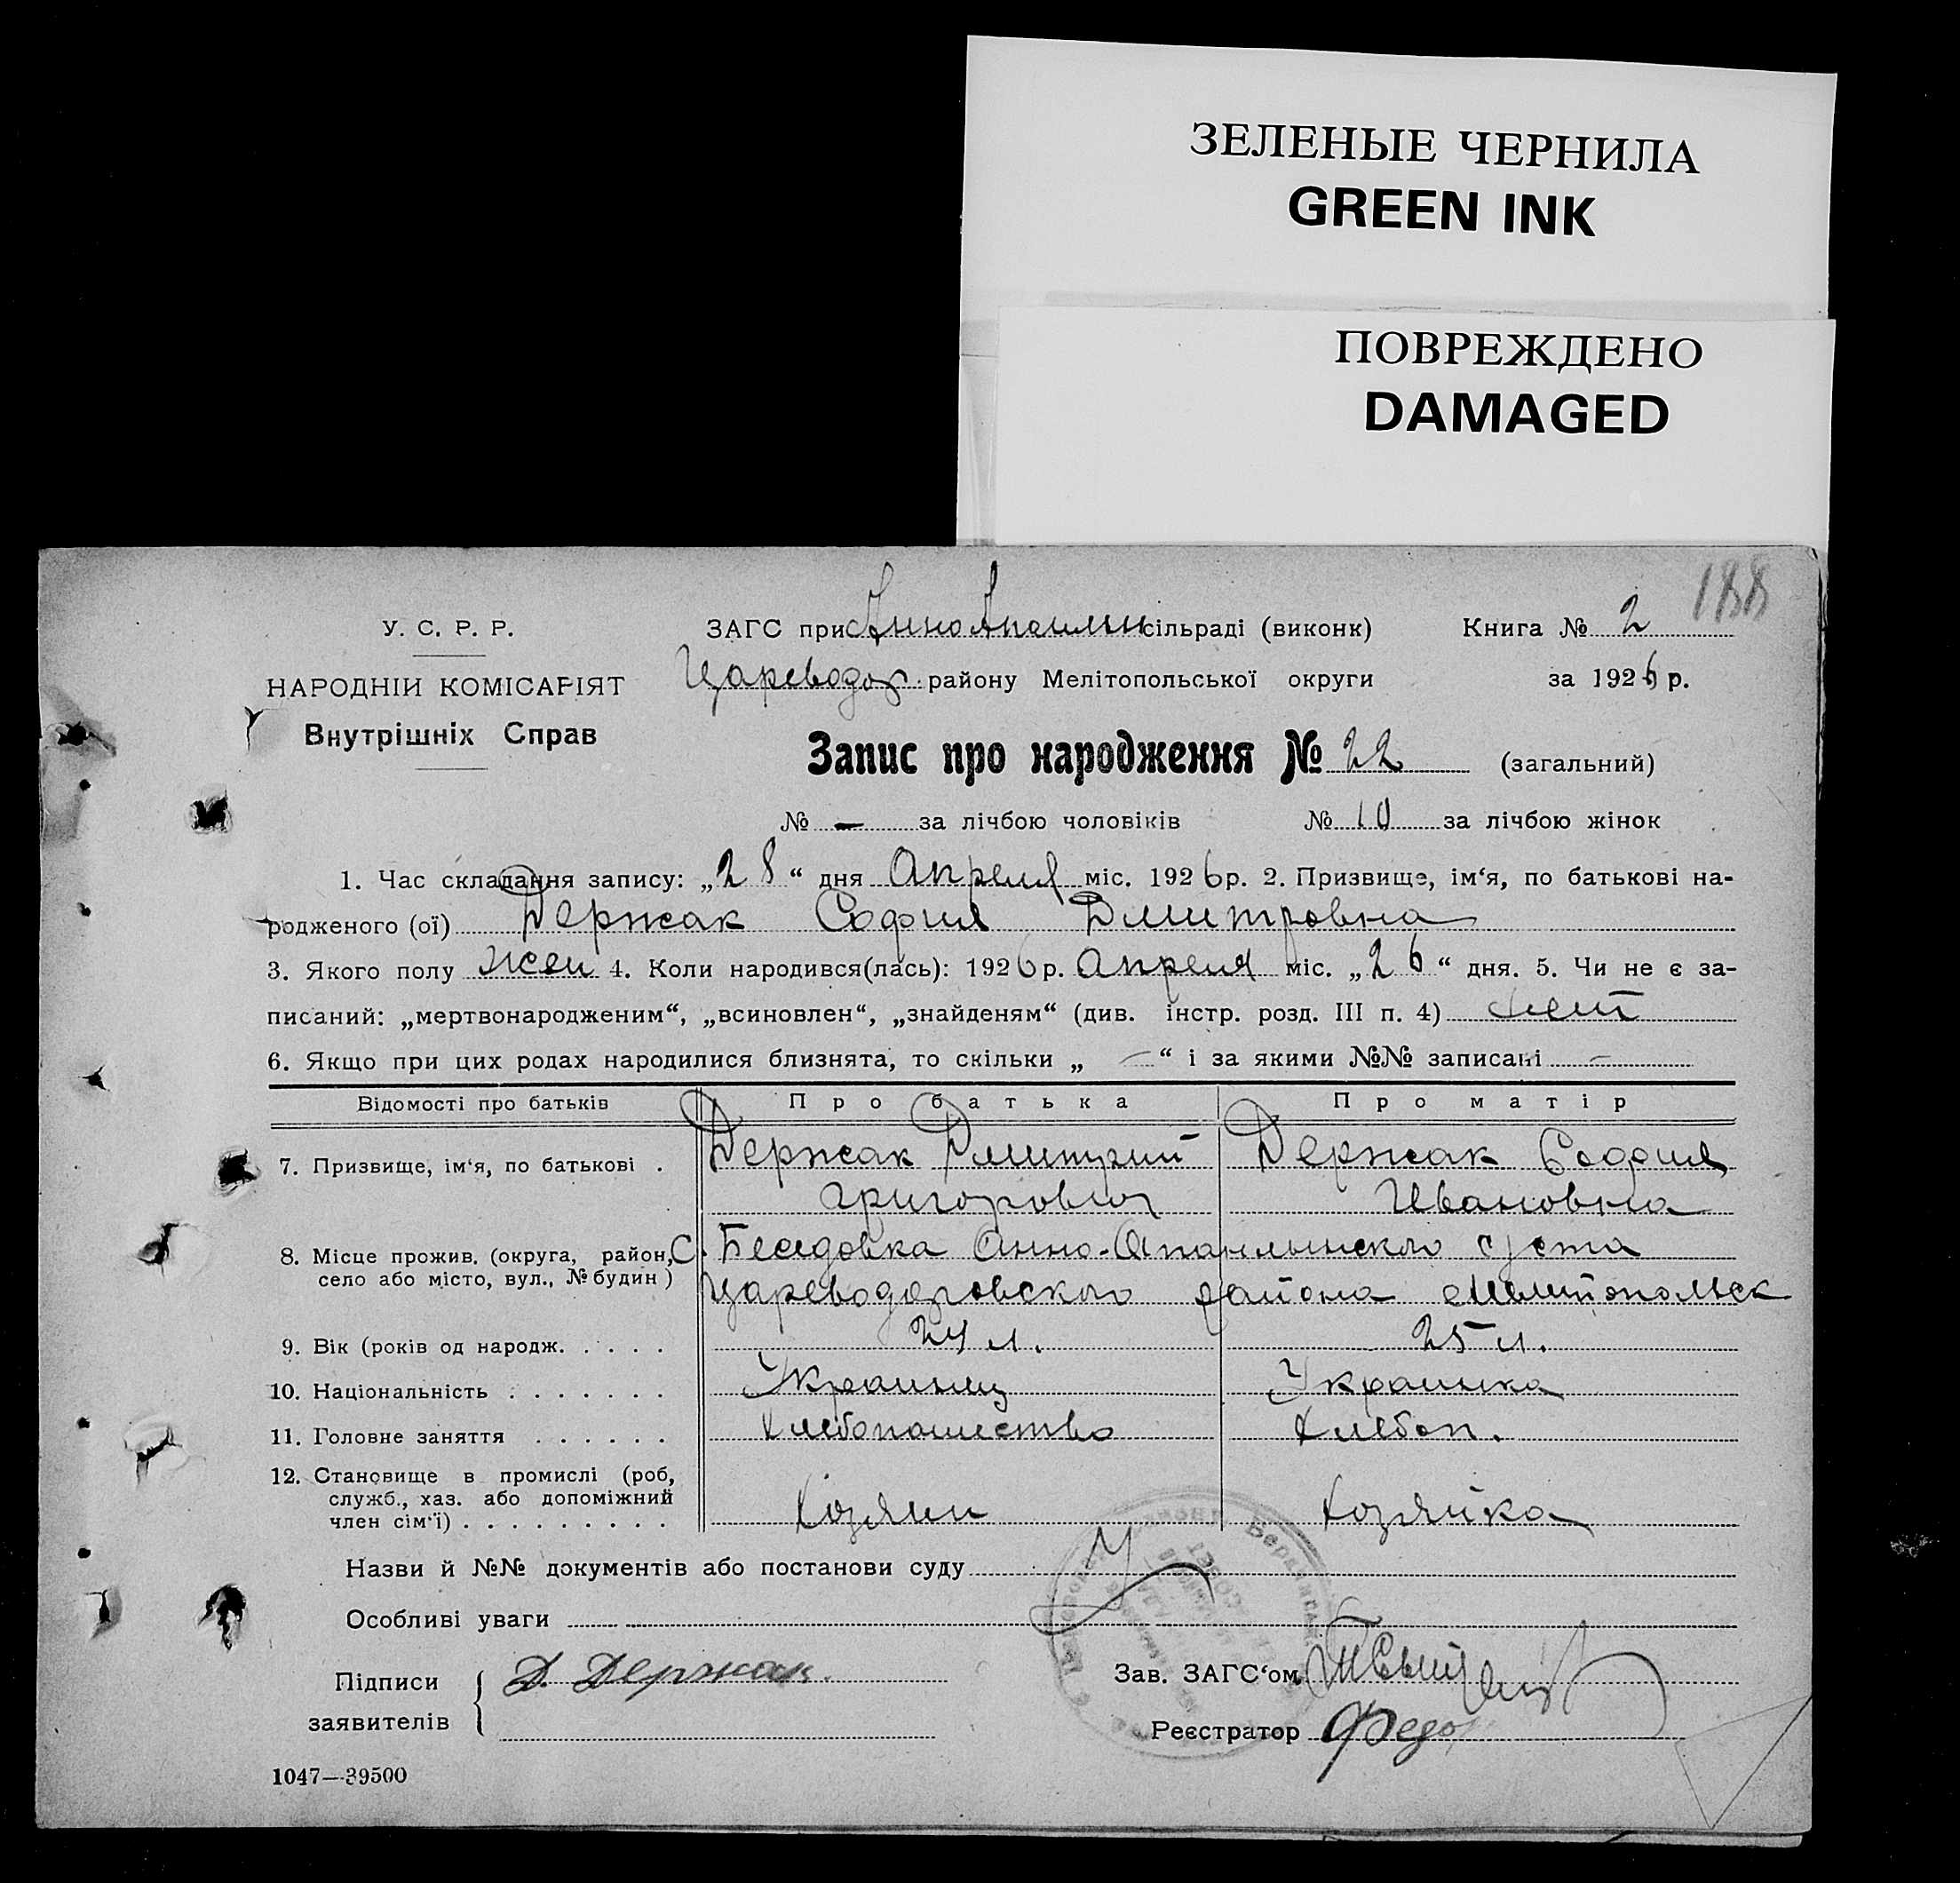 ЗЕЛЕНЫЕ ЧЕРНИЛА
GREEN INK
ПОВРЕЖДЕНО
DAMAGED
188
У. С. Р. Р.
НАРОДНІЙ КОМІСАРІЯТ
Внутрішніх Справ
ЗАГС при сільраді (виконк) Книга № 2
Цареводар. району Мелітопольської округи за 1926 р.
Запис про народження № 22 (загальний)
№ — за лічбою чоловіків № 10 за лічбою жінок
1. Час складання запису: „28“ дня Апреля міс. 1926 р. 2. Призвище, ім‘я, по батькові на-
родженого (ої) Держак София Дмитровна
3. Якого полу жен 4. Коли народився(лась): 1926 р. Апреля міс. „26“ дня. 5. Чи не є за-
писаний: „мертвонародженим“, „всиновлен“, „знайденям“ (див. інстр. розд. III п. 4) нет
6. Якщо при цих родах народилися близнята, то скільки „ — “ і за якими №№ записані —
Відомості про батьків Про батька Про матір
7. Призвище, ім‘я, по батькові . Держак Дмитрий Держак София
Григорович Ивановна
8. Місце прожив. (округа, район, С. Беседовка Анно- с/сета
село або місто, вул., № будин) Цареводаровского района Мелитопольск
9. Вік (років од народж. . . . . 24 л. 25 л.
10. Національність . . . . . . . Украинец Украинка
11. Головне заняття . . . . . . Хлебопашество Хлебоп.
12. Становище в промислі (роб,
служб., хаз. або допоміжний
член сім‘ї) . . . . . . . . . Хозяин Хозяйка
Назви й №№ документів або постанови суду
Особливі уваги
Підписи Д. Держак. Зав. ЗАГС‘ом
заявителів Реєстратор
1047—39500